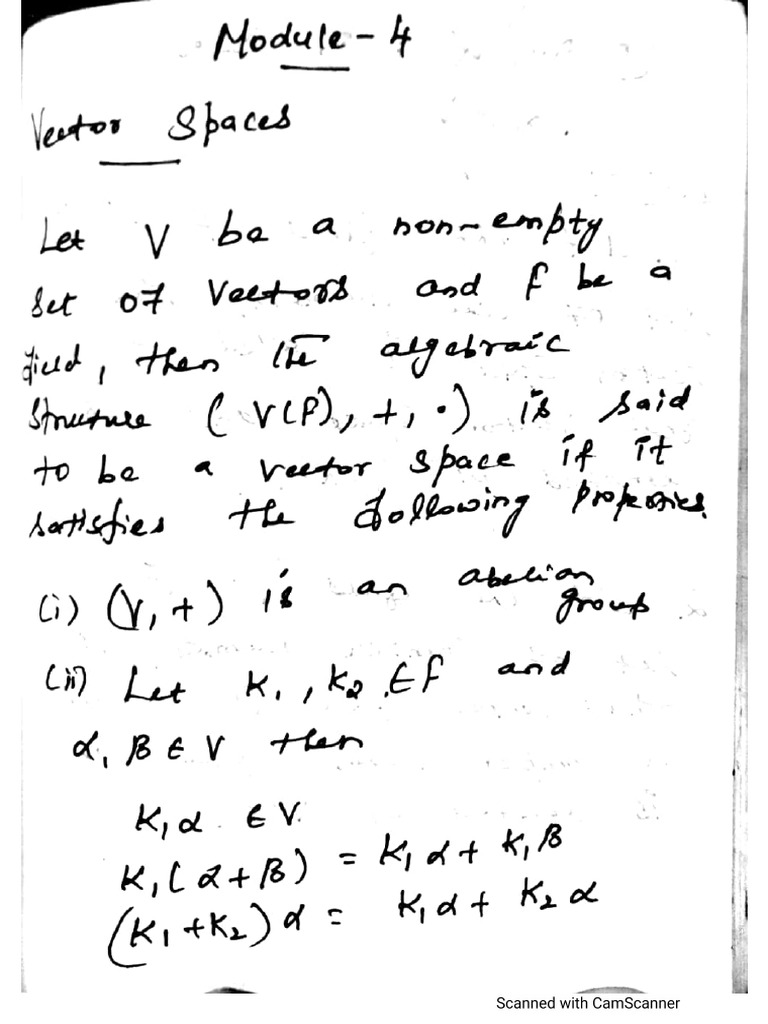 Module - 4
Vector Spaces
Let V be a non-empty
set of vectors and F be a
field, then the algebraic
structure ( V(F), +, •) is said
to be a vector space if it
satisfies the following properties.
(i) (V, +) is an abelian group.
(ii) Let K₁, K₂ ∈ F and
α, β ∈ V then
K₁α ∈ V.
K₁(α+β) = K₁α + K₁β
(K₁+K₂)α = K₁α + K₂α
Scanned with CamScanner